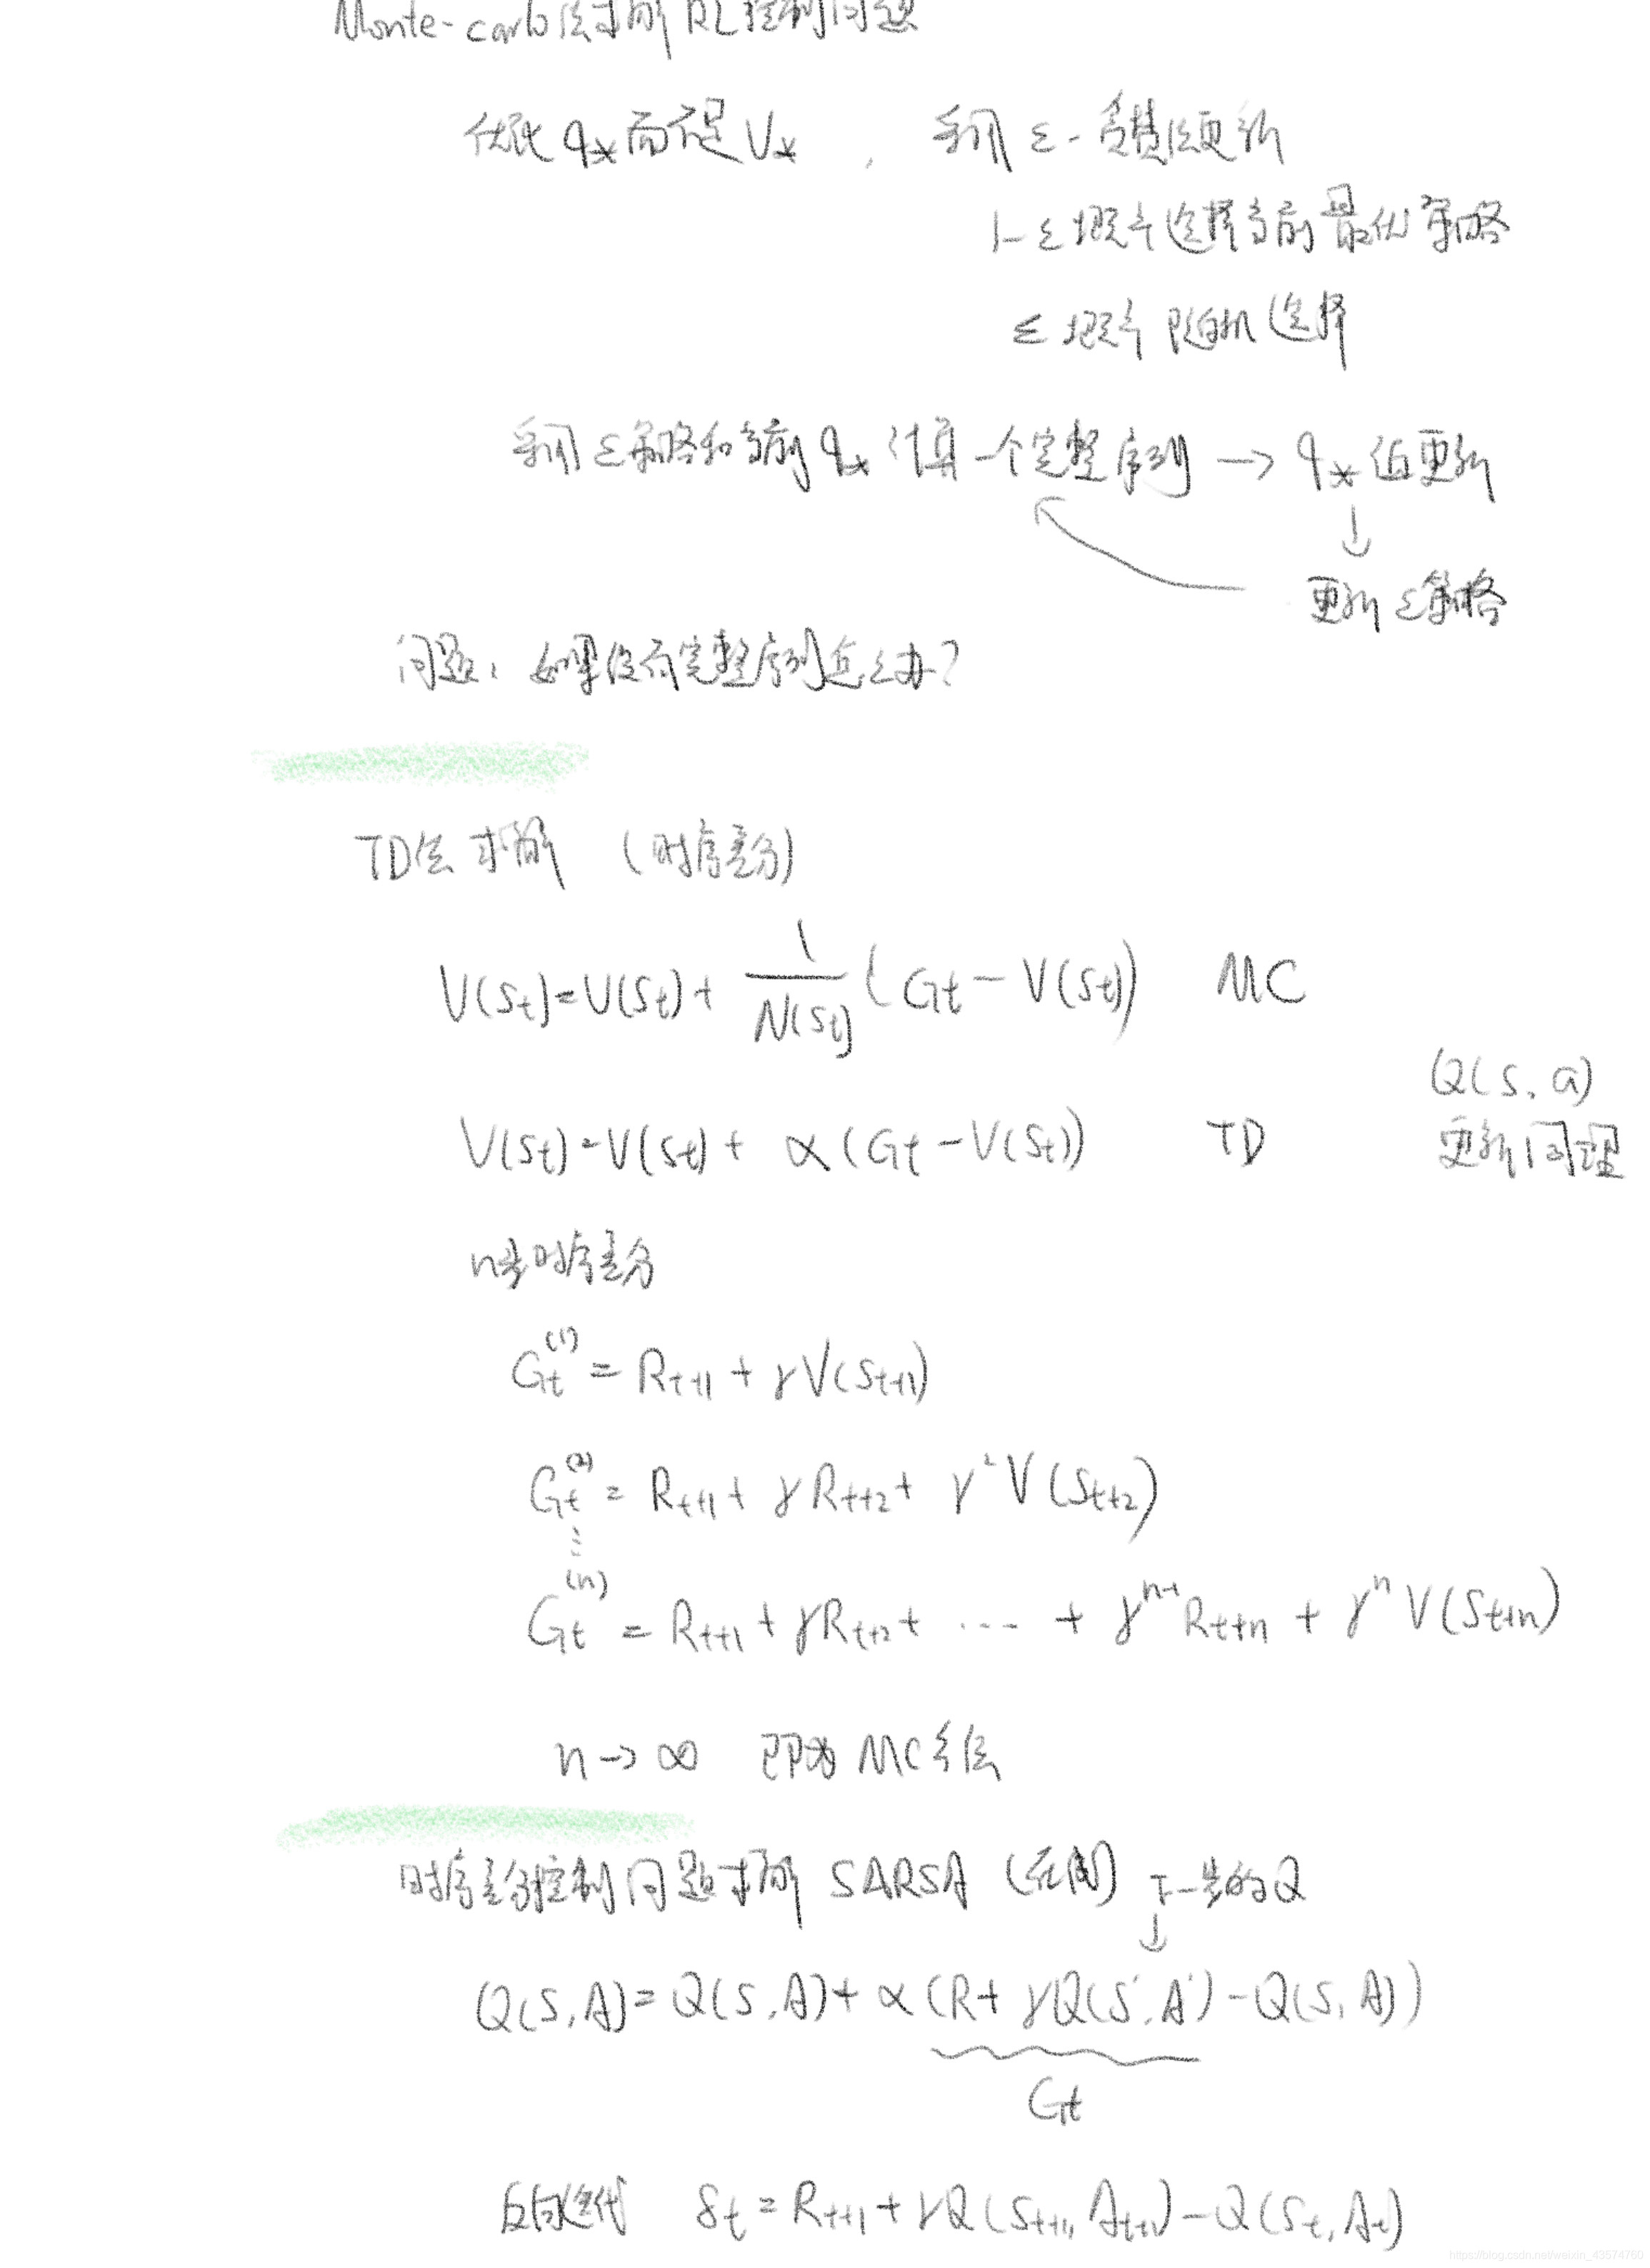 Monte-carlo法求解RL控制问题
优化 q* 而不是 V* , 采用 ε-贪婪法更新
1-ε 概率选择当前最优策略
ε 概率 随机选择
采用 ε策略和当前 q* 计算一个完整序列 → q* 值更新
↓
更新 ε策略
问题: 如果没有完整序列怎么办?
TD法求解 (时序差分)
V(St)=V(St)+ 1/N(St) (Gt - V(St)) MC
Q(S, a)
V(St)=V(St)+ α(Gt-V(St)) TD 更新同理
n步时序差分
Gt^(1) = Rt+1 + γV(St+1)
Gt^(2) = Rt+1 + γRt+2 + γ²V(St+2)
⋮
Gt^(n) = Rt+1 + γRt+2 + ... + γ^(n-1) Rt+n + γ^n V(St+n)
n→∞ 即为MC方法
时序差分控制问题求解 SARSA (在线) 下一步的Q
↓
Q(S,A)=Q(S,A)+α(R+γQ(S',A')-Q(S,A))
Gt
反向迭代 δt=Rt+1+γQ(St+1,At+1)-Q(St,At)
https://blog.csdn.net/weixin_43674760